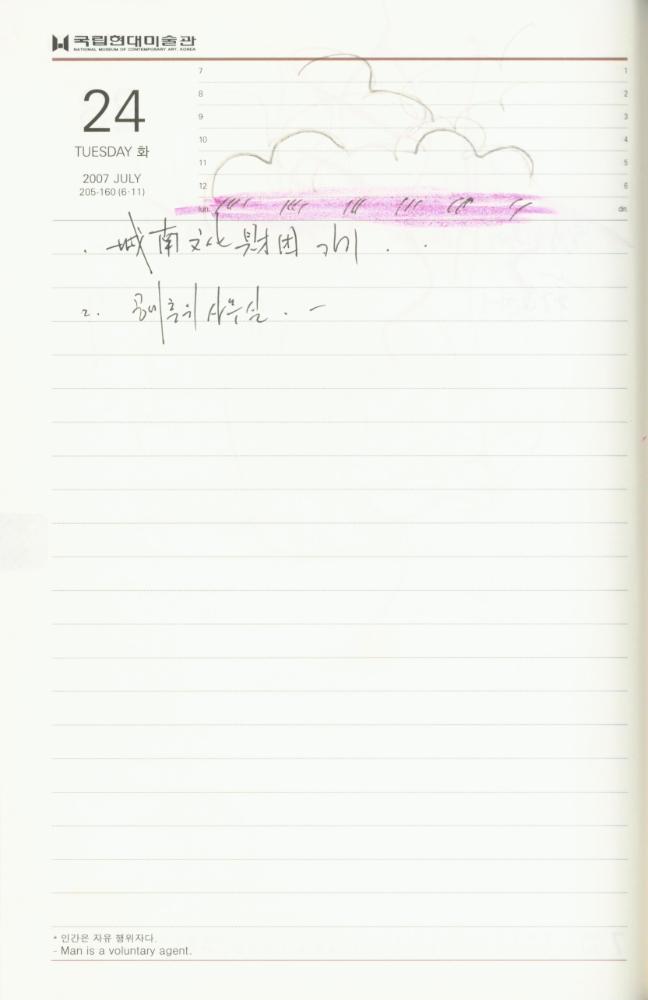 국립현대미술관
NATIONAL MUSEUM OF CONTEMPORARY ART, KOREA
24
TUESDAY 화
2007 JULY
205-160 (6·11)
7 1
8 2
9 3
10 4
11 5
12 6
lun. din.
. 城南文化財団
2. 사무실. -
* 인간은 자유 행위자다.
- Man is a voluntary agent.